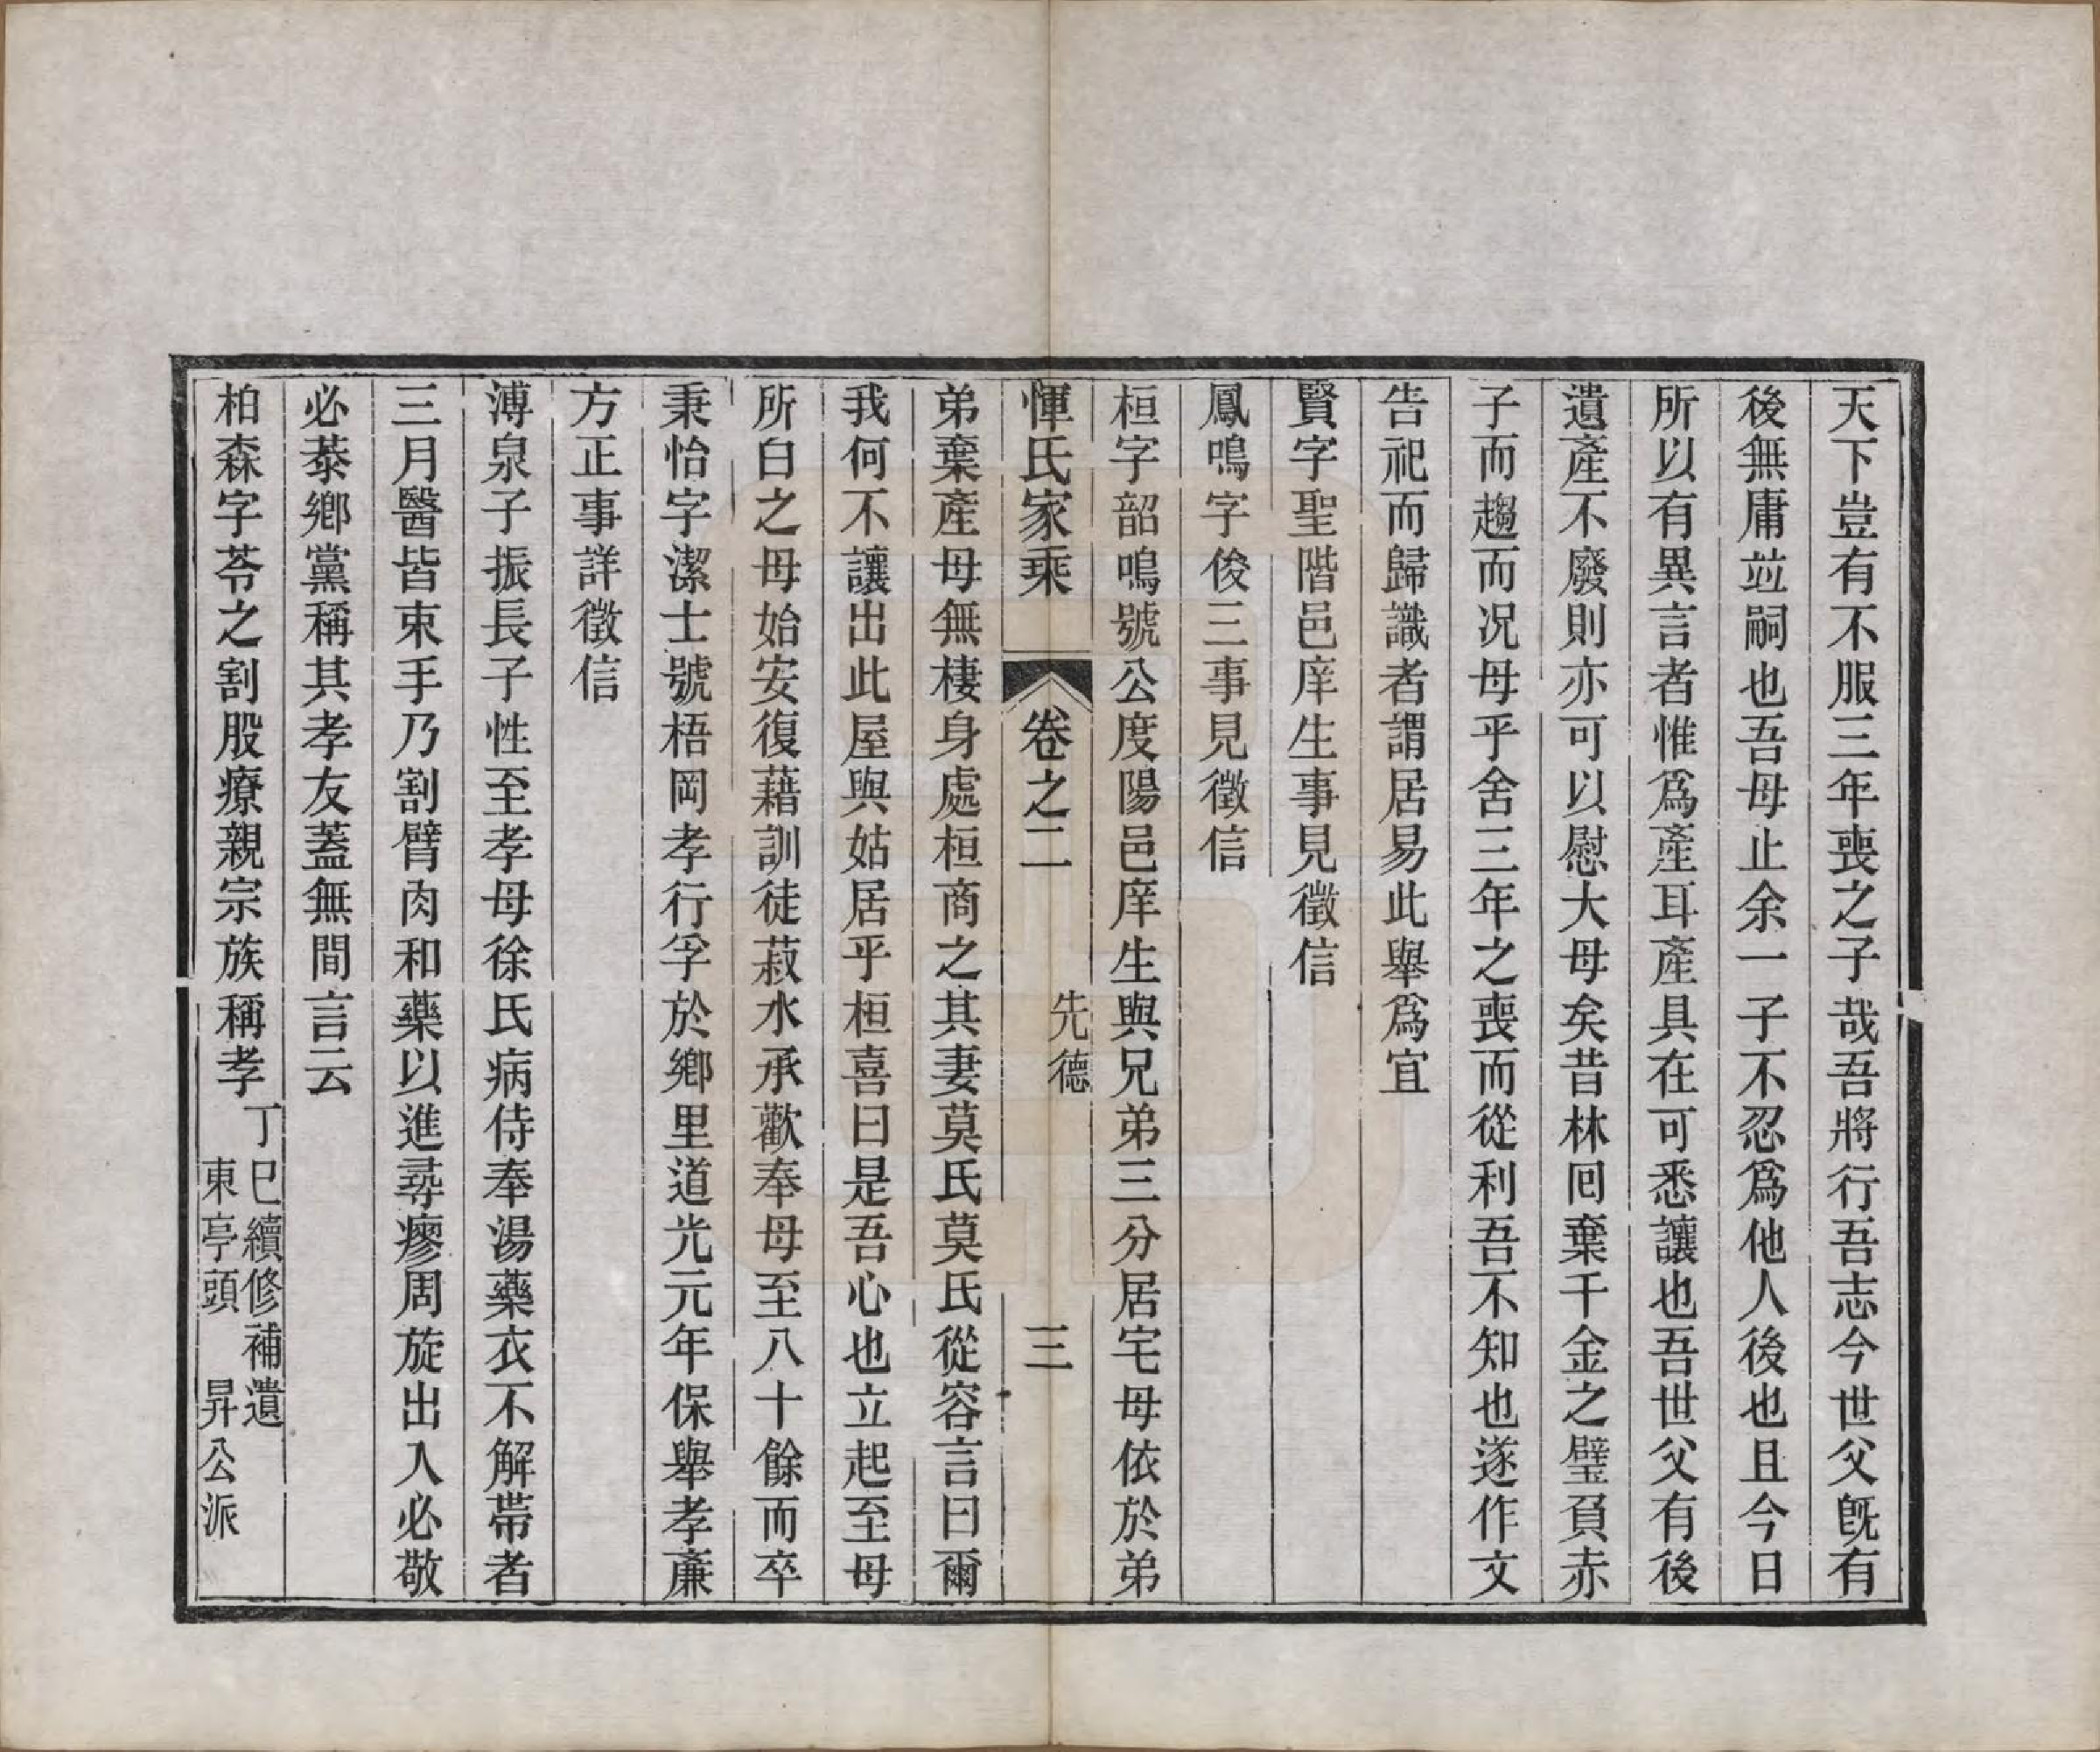 天下豈有不服三年喪之子哉吾將行吾志今世父旣有
後無庸竝嗣也吾母止余一子不忍爲他人後也且今日
所以有異言者惟爲產耳產具在可悉讓也吾世父有後
遺產不廢則亦可以慰大母矣昔林囘棄千金之璧負赤
子而趨而况母乎舍三年之喪而從利吾不知也遂作文
告祀而歸識者謂居易此舉爲宜
賢字聖階邑庠生事見徵信
鳳鳴字俊三事見徵信
桓字韶鳴號公度陽邑庠生與兄弟三分居宅母依於弟
惲氏家乘 卷之二 先德 三
弟棄產母無棲身處桓商之其妻莫氏莫氏從容言曰爾
我何不讓出此屋與姑居乎桓喜曰是吾心也立起至母
所白之母始安復藉訓徒菽水承歡奉母至八十餘而卒
秉怡字潔士號梧岡孝行孚於鄉里道光元年保舉孝廉
方正事詳徵信
溥泉子振長子性至孝母徐氏病侍奉湯藥衣不解帶者
三月醫皆束手乃割臂肉和藥以進尋瘳周旋出入必敬
必恭鄉黨稱其孝友蓋無間言云
柏森字苓之割股療親宗族稱孝 丁巳續修補遺 東亭頭 昇公派